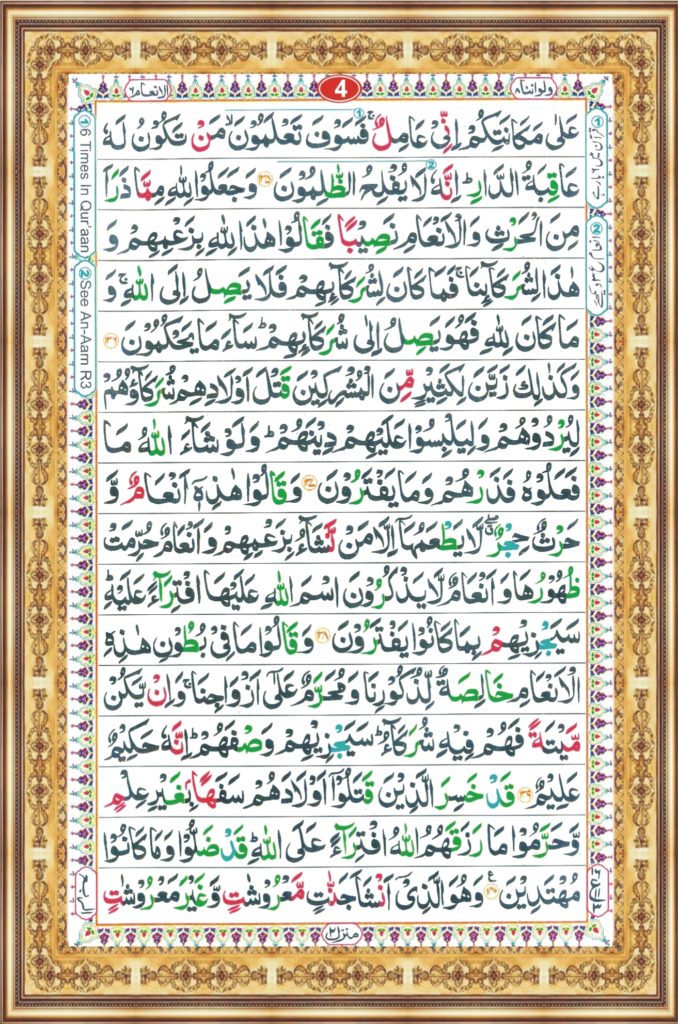 ولواننا ٨
4
الانعام ٦
عَلٰى مَكَانَتِكُمْ اِنِّىْ عَامِلٌ ۚ فَسَوْفَ تَعْلَمُوْنَ ۙ مَنْ تَكُوْنُ لَهٗ
عَاقِبَةُ الدَّارِ ؕ اِنَّهٗ لَا يُفْلِحُ الظّٰلِمُوْنَ ﴿۱۳۵﴾ وَجَعَلُوْا لِلّٰهِ مِمَّا ذَرَاَ
مِنَ الْحَرْثِ وَالْاَنْعَامِ نَصِيْبًا فَقَالُوْا هٰذَا لِلّٰهِ بِزَعْمِهِمْ وَ
هٰذَا لِشُرَكَآئِنَا ۚ فَمَا كَانَ لِشُرَكَآئِهِمْ فَلَا يَصِلُ اِلَى اللّٰهِ ۚ وَ
مَا كَانَ لِلّٰهِ فَهُوَ يَصِلُ اِلٰى شُرَكَآئِهِمْ ؕ سَآءَ مَا يَحْكُمُوْنَ ﴿۱۳۶﴾
وَكَذٰلِكَ زَيَّنَ لِكَثِيْرٍ مِّنَ الْمُشْرِكِيْنَ قَتْلَ اَوْلَادِهِمْ شُرَكَآؤُهُمْ
لِيُرْدُوْهُمْ وَلِيَلْبِسُوْا عَلَيْهِمْ دِيْنَهُمْ ؕ وَلَوْ شَآءَ اللّٰهُ مَا
فَعَلُوْهُ فَذَرْهُمْ وَمَا يَفْتَرُوْنَ ﴿۱۳۷﴾ وَقَالُوْا هٰذِهٖۤ اَنْعَامٌ وَّ
حَرْثٌ حِجْرٌ ۖ لَّا يَطْعَمُهَاۤ اِلَّا مَنْ نَّشَآءُ بِزَعْمِهِمْ وَاَنْعَامٌ حُرِّمَتْ
ظُهُوْرُهَا وَاَنْعَامٌ لَّا يَذْكُرُوْنَ اسْمَ اللّٰهِ عَلَيْهَا افْتِرَآءً عَلَيْهِ ؕ
سَيَجْزِيْهِمْ بِمَا كَانُوْا يَفْتَرُوْنَ ﴿۱۳۸﴾ وَقَالُوْا مَا فِىْ بُطُوْنِ هٰذِهِ
الْاَنْعَامِ خَالِصَةٌ لِّذُكُوْرِنَا وَمُحَرَّمٌ عَلٰٓى اَزْوَاجِنَا ۚ وَاِنْ يَّكُنْ
مَّيْتَةً فَهُمْ فِيْهِ شُرَكَآءُ ؕ سَيَجْزِيْهِمْ وَصْفَهُمْ ؕ اِنَّهٗ حَكِيْمٌ
عَلِيْمٌ ﴿۱۳۹﴾ قَدْ خَسِرَ الَّذِيْنَ قَتَلُوْۤا اَوْلَادَهُمْ سَفَهًۢا بِغَيْرِ عِلْمٍ
وَّحَرَّمُوْا مَا رَزَقَهُمُ اللّٰهُ افْتِرَآءً عَلَى اللّٰهِ ؕ قَدْ ضَلُّوْا وَمَا كَانُوْا
مُهْتَدِيْنَ ﴿۱۴۰﴾ وَهُوَ الَّذِىْۤ اَنْشَاَ جَنّٰتٍ مَّعْرُوْشٰتٍ وَّغَيْرَ مَعْرُوْشٰتٍ
منزل ٢
① 6 Times In Qur'aan
② See An-Aam R3